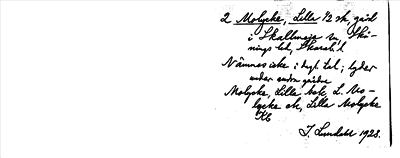 2 Molycke, Lilla 1/2 sk, gård
i Skallmeja sn, Skå-
nings hd, Skarab. l
Nämnes icke i dagl. tal; lyder
under andra gårdar
Molycke, Lilla hsk, L. Mo-
lycke ek, Lilla Molycke
Kb
J. Lundahl 1923.